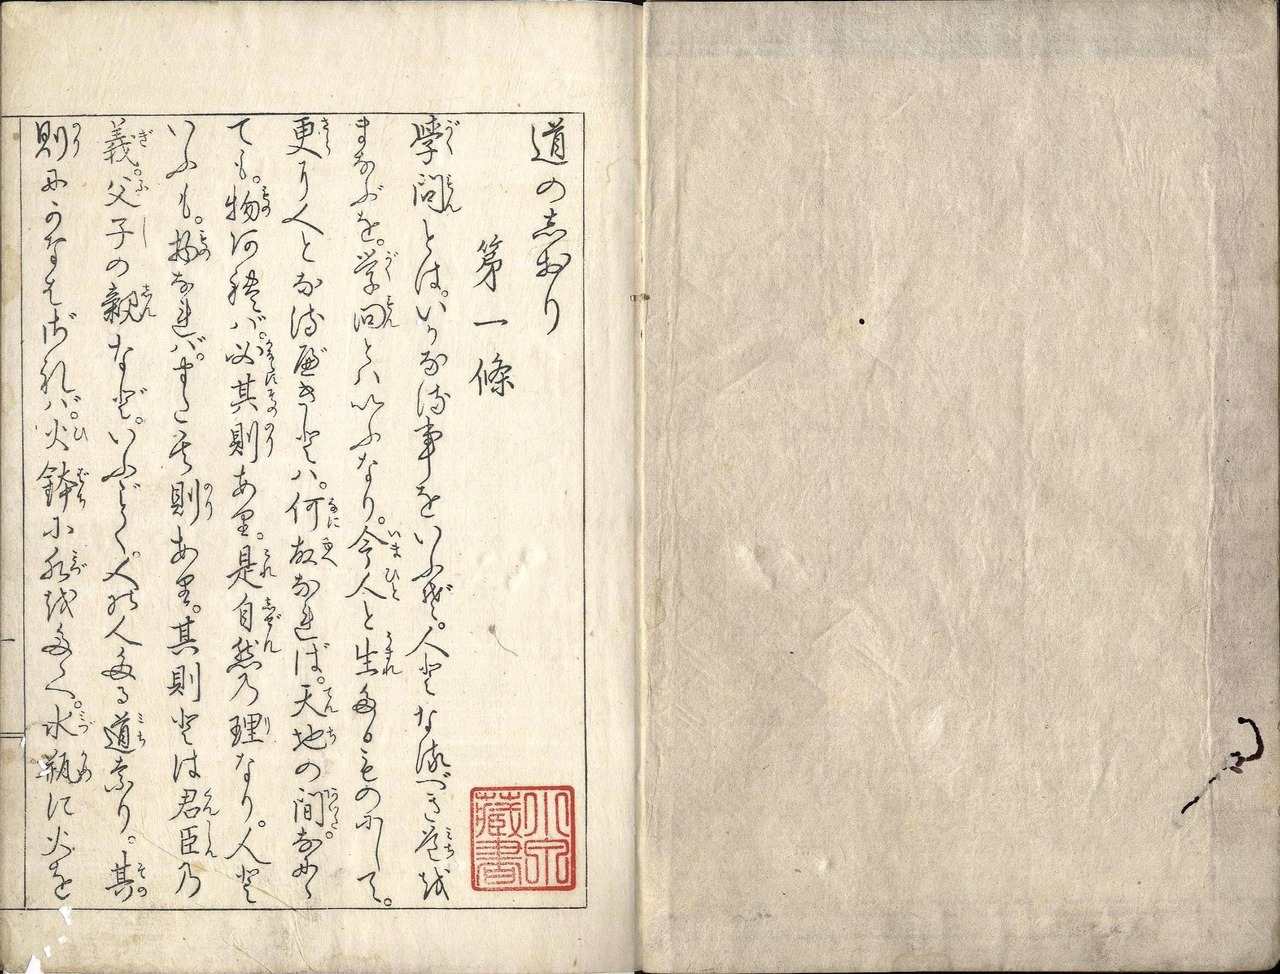 道のしおり
第一條
学問とは。いかなる事をいふぞ。人となるべき道を
まなぶを。学問とハいふなり。今人と生たるものにして。
更に人となるべきとハ。何故なれば。天地の間にあり
ても。物あれバ。必其則あり。是自然の理なり。人と
いふも。物なれバ。また其則あり。其則とは君臣の
義。父子の親など。いふごとく。人の人たる道なり。其
則にかなはざれバ。火鉢に水をたゝへ。水瓶に火を
小泉蔵書